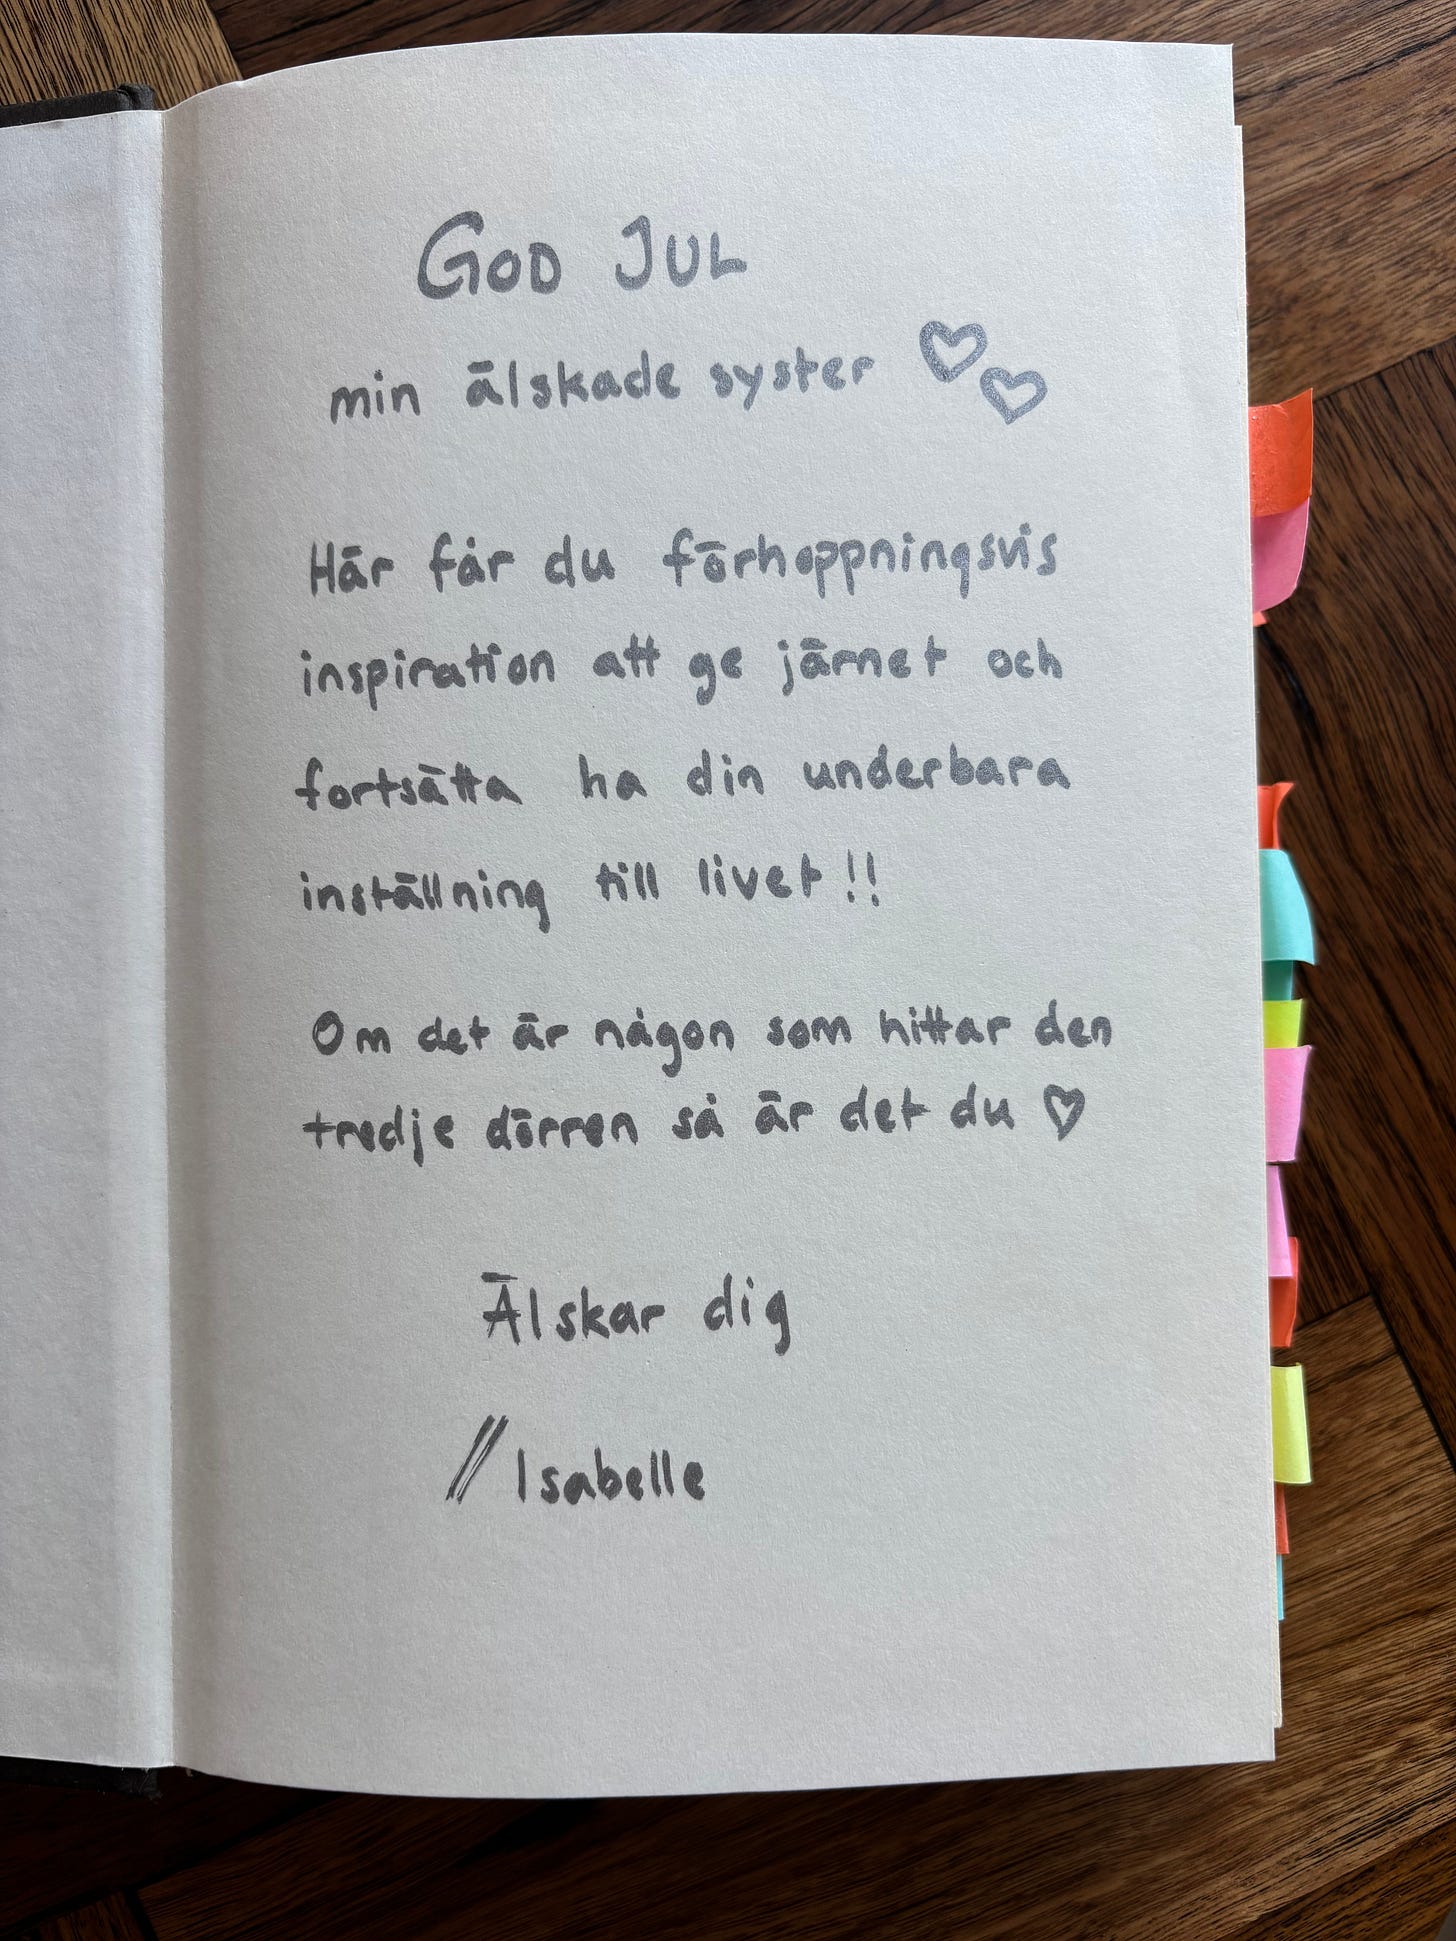 GOD JUL
min älskade syster ♡♡
Här får du förhoppningsvis
inspiration att ge järnet och
fortsätta ha din underbara
inställning till livet!!
Om det är någon som hittar den
tredje dörren så är det du ♡
Älskar dig
// Isabelle